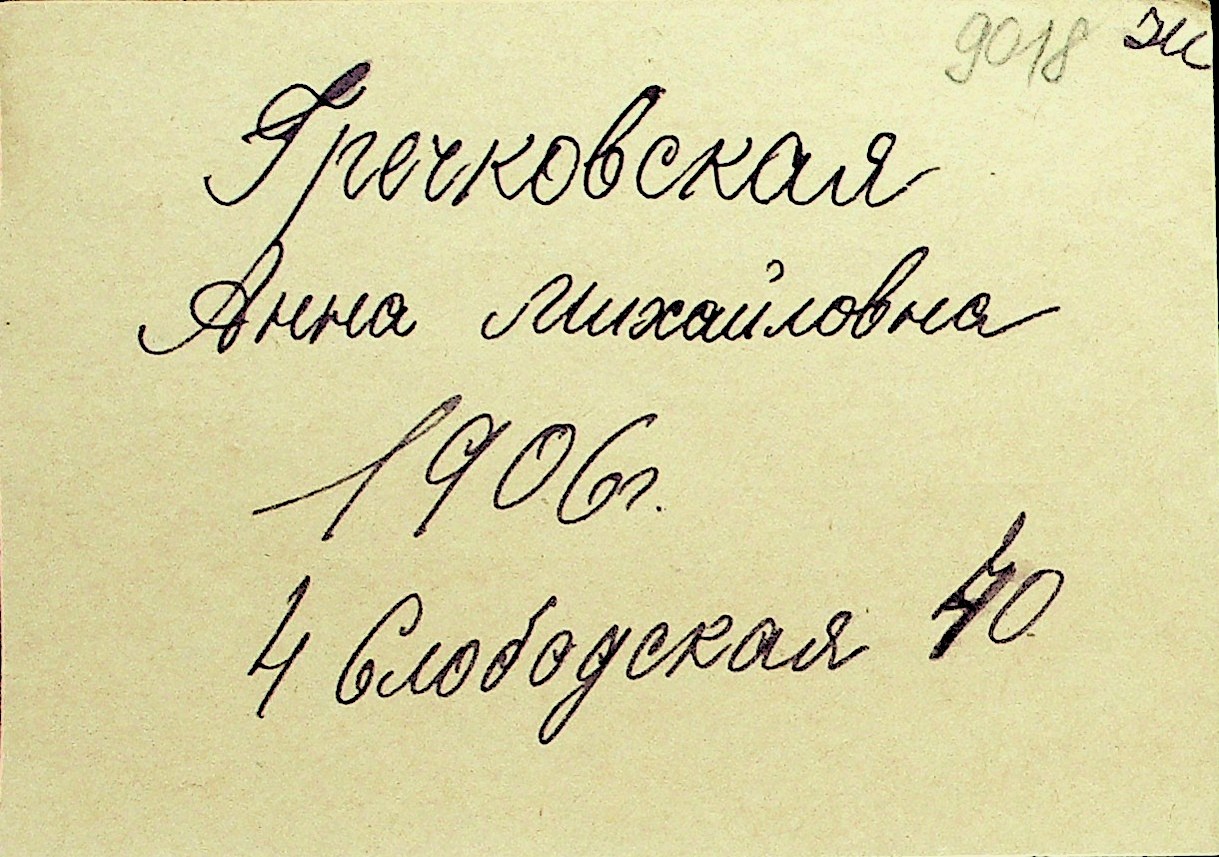 9018
Гречковская
Анна Михайловна
1906г.
4 Слободская 40